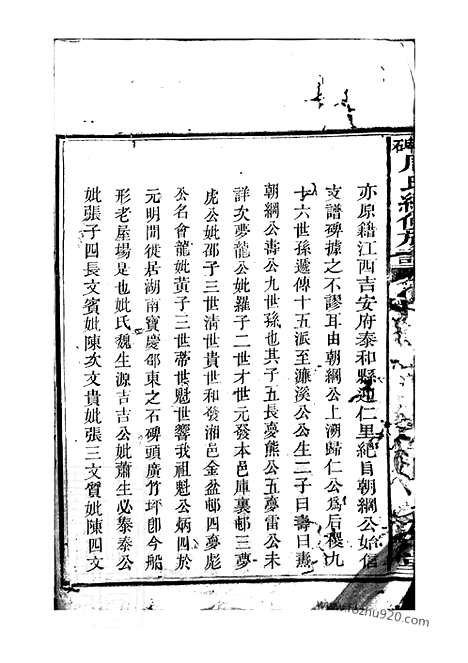 亦原籍江西吉安府泰和縣延仁里紀自朝綱公始信
支譜碑據之不謬耳由朝綱公上溯歸仁公爲后稷九
十六世孫遞傳十五派至濂溪公公生二子曰壽曰燾
朝綱公壽公九世孫也其子五長夢熊公五夢雷公未
詳次夢龍公妣羅子二世才世元發本邑庫裏邨三夢
虎公妣邵子三世清世貴世和發湘邑金盆邨四夢彪
公名會龍妣黃子三世蒂世魁世響我祖魁公炳四於
元明間徙居湖南寶慶邵東之石碑頭廣竹坪卽今船
形老屋場是也妣氏魏生源吉吉公妣蕭生必泰泰公
妣張子四長文賓妣陳次文貴妣張三文質妣陳四文
www.fozhu920.com